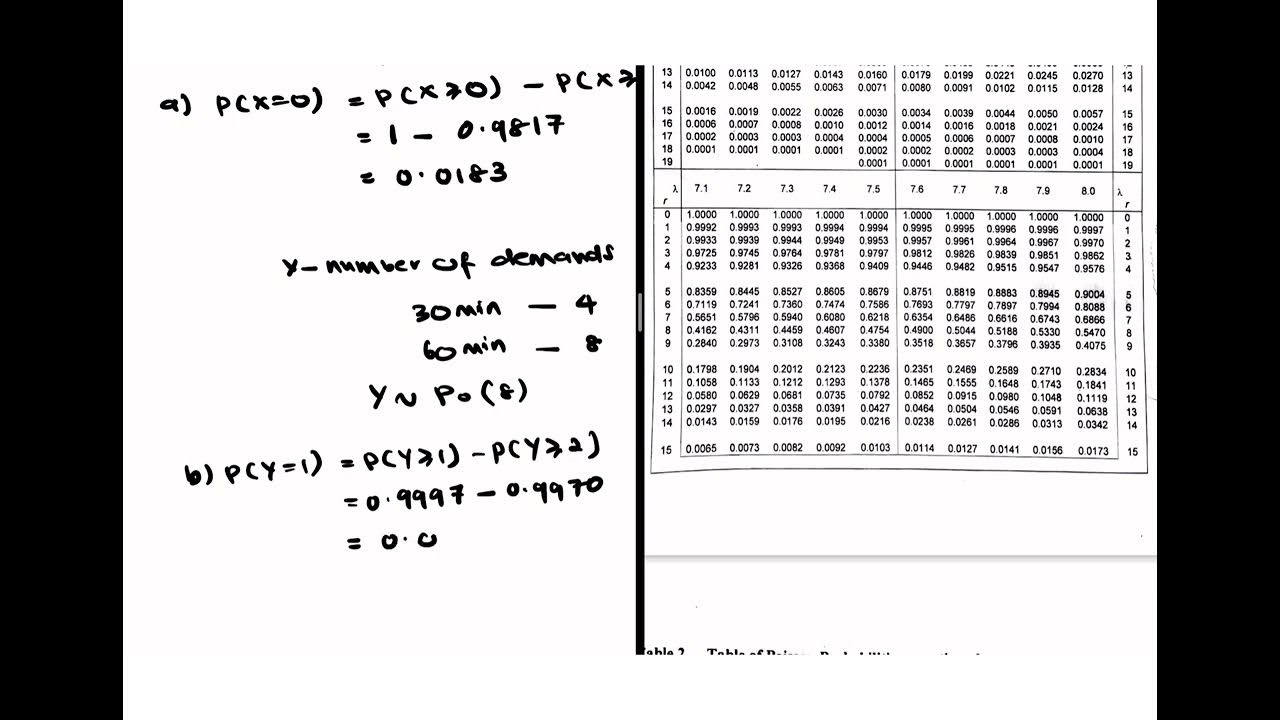 a) P(X=0) = P(X⩾0) - P(X⩾
= 1 - 0.9817
= 0.0183
Y-number of demands
30min - 4
60min - 8
Y~ Po(8)
b) P(Y=1) = P(Y⩾1) - P(Y⩾2)
= 0.9997 - 0.9970
= 0.0
13 0.0100 0.0113 0.0127 0.0143 0.0160 0.0179 0.0199 0.0221 0.0245 0.0270 13
14 0.0042 0.0048 0.0055 0.0063 0.0071 0.0080 0.0091 0.0102 0.0115 0.0128 14
15 0.0016 0.0019 0.0022 0.0026 0.0030 0.0034 0.0039 0.0044 0.0050 0.0057 15
16 0.0006 0.0007 0.0008 0.0010 0.0012 0.0014 0.0016 0.0018 0.0021 0.0024 16
17 0.0002 0.0003 0.0003 0.0004 0.0004 0.0005 0.0006 0.0007 0.0008 0.0010 17
18 0.0001 0.0001 0.0001 0.0001 0.0002 0.0002 0.0002 0.0003 0.0003 0.0004 18
19 0.0001 0.0001 0.0001 0.0001 0.0001 0.0001 19
λ 7.1 7.2 7.3 7.4 7.5 7.6 7.7 7.8 7.9 8.0 λ
r r
0 1.0000 1.0000 1.0000 1.0000 1.0000 1.0000 1.0000 1.0000 1.0000 1.0000 0
1 0.9992 0.9993 0.9993 0.9994 0.9994 0.9995 0.9995 0.9996 0.9996 0.9997 1
2 0.9933 0.9939 0.9944 0.9949 0.9953 0.9957 0.9961 0.9964 0.9967 0.9970 2
3 0.9725 0.9745 0.9764 0.9781 0.9797 0.9812 0.9826 0.9839 0.9851 0.9862 3
4 0.9233 0.9281 0.9326 0.9368 0.9409 0.9446 0.9482 0.9515 0.9547 0.9576 4
5 0.8359 0.8445 0.8527 0.8605 0.8679 0.8751 0.8819 0.8883 0.8945 0.9004 5
6 0.7119 0.7241 0.7360 0.7474 0.7586 0.7693 0.7797 0.7897 0.7994 0.8088 6
7 0.5651 0.5796 0.5940 0.6080 0.6218 0.6354 0.6486 0.6616 0.6743 0.6866 7
8 0.4162 0.4311 0.4459 0.4607 0.4754 0.4900 0.5044 0.5188 0.5330 0.5470 8
9 0.2840 0.2973 0.3108 0.3243 0.3380 0.3518 0.3657 0.3796 0.3935 0.4075 9
10 0.1798 0.1904 0.2012 0.2123 0.2236 0.2351 0.2469 0.2589 0.2710 0.2834 10
11 0.1058 0.1133 0.1212 0.1293 0.1378 0.1465 0.1555 0.1648 0.1743 0.1841 11
12 0.0580 0.0629 0.0681 0.0735 0.0792 0.0852 0.0915 0.0980 0.1048 0.1119 12
13 0.0297 0.0327 0.0358 0.0391 0.0427 0.0464 0.0504 0.0546 0.0591 0.0638 13
14 0.0143 0.0159 0.0176 0.0195 0.0216 0.0238 0.0261 0.0286 0.0313 0.0342 14
15 0.0065 0.0073 0.0082 0.0092 0.0103 0.0114 0.0127 0.0141 0.0156 0.0173 15